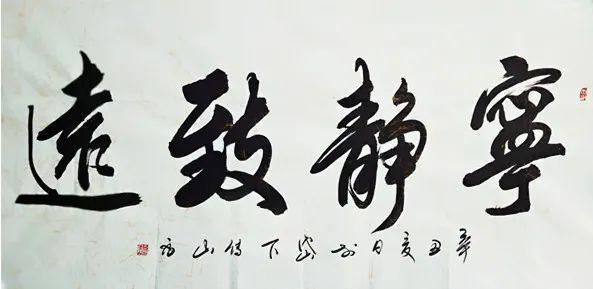 寧靜致遠
辛丑夏日於岱下傅山房